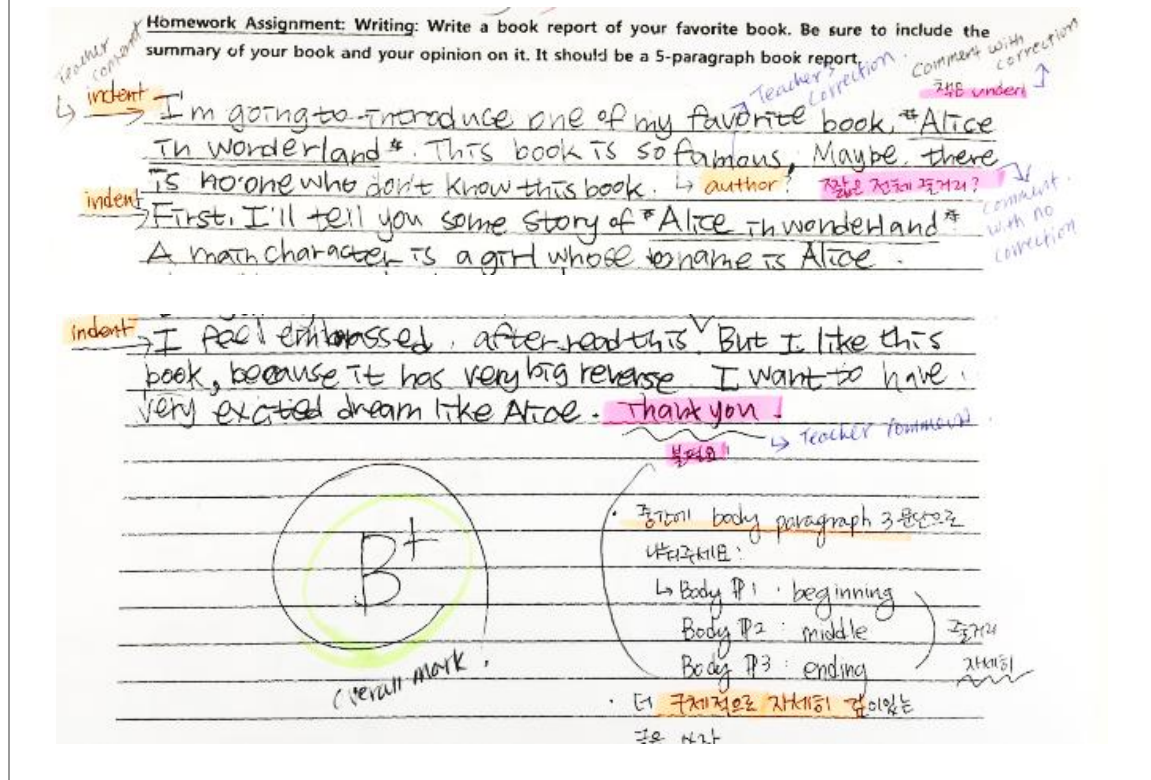 Homework Assignment: Writing: Write a book report of your favorite book. Be sure to include the
summary of your book and your opinion on it. It should be a 5-paragraph book report.
Teacher comment
Teacher's correction.
Comment with correction
indent
책은 underl
I'm going to introduce one of my favorite book, "Alice
in wonderland". This book is so famous, Maybe, there
is no one who don't know this book. ↳ author? 짧은 전체 줄거리?
comment with no correction
indent
First, I'll tell you some story of "Alice in wonderland"
A main character is a girl whose name is Alice.
indent
I feel embrassed, after read this. But I like this
book, because it has very big reverse I want to have
very excited dream like Alice. Thank you!
↳ Teacher comment.
불필요
B+
overall mark.
· 중간에 body paragraph 3문단으로
나눠주세요:
↳ Body ¶1 : beginning
Body ¶2 : middle
Body ¶3 : ending
줄거리
자세히
· 더 구체적으로 자세히 깊이있는